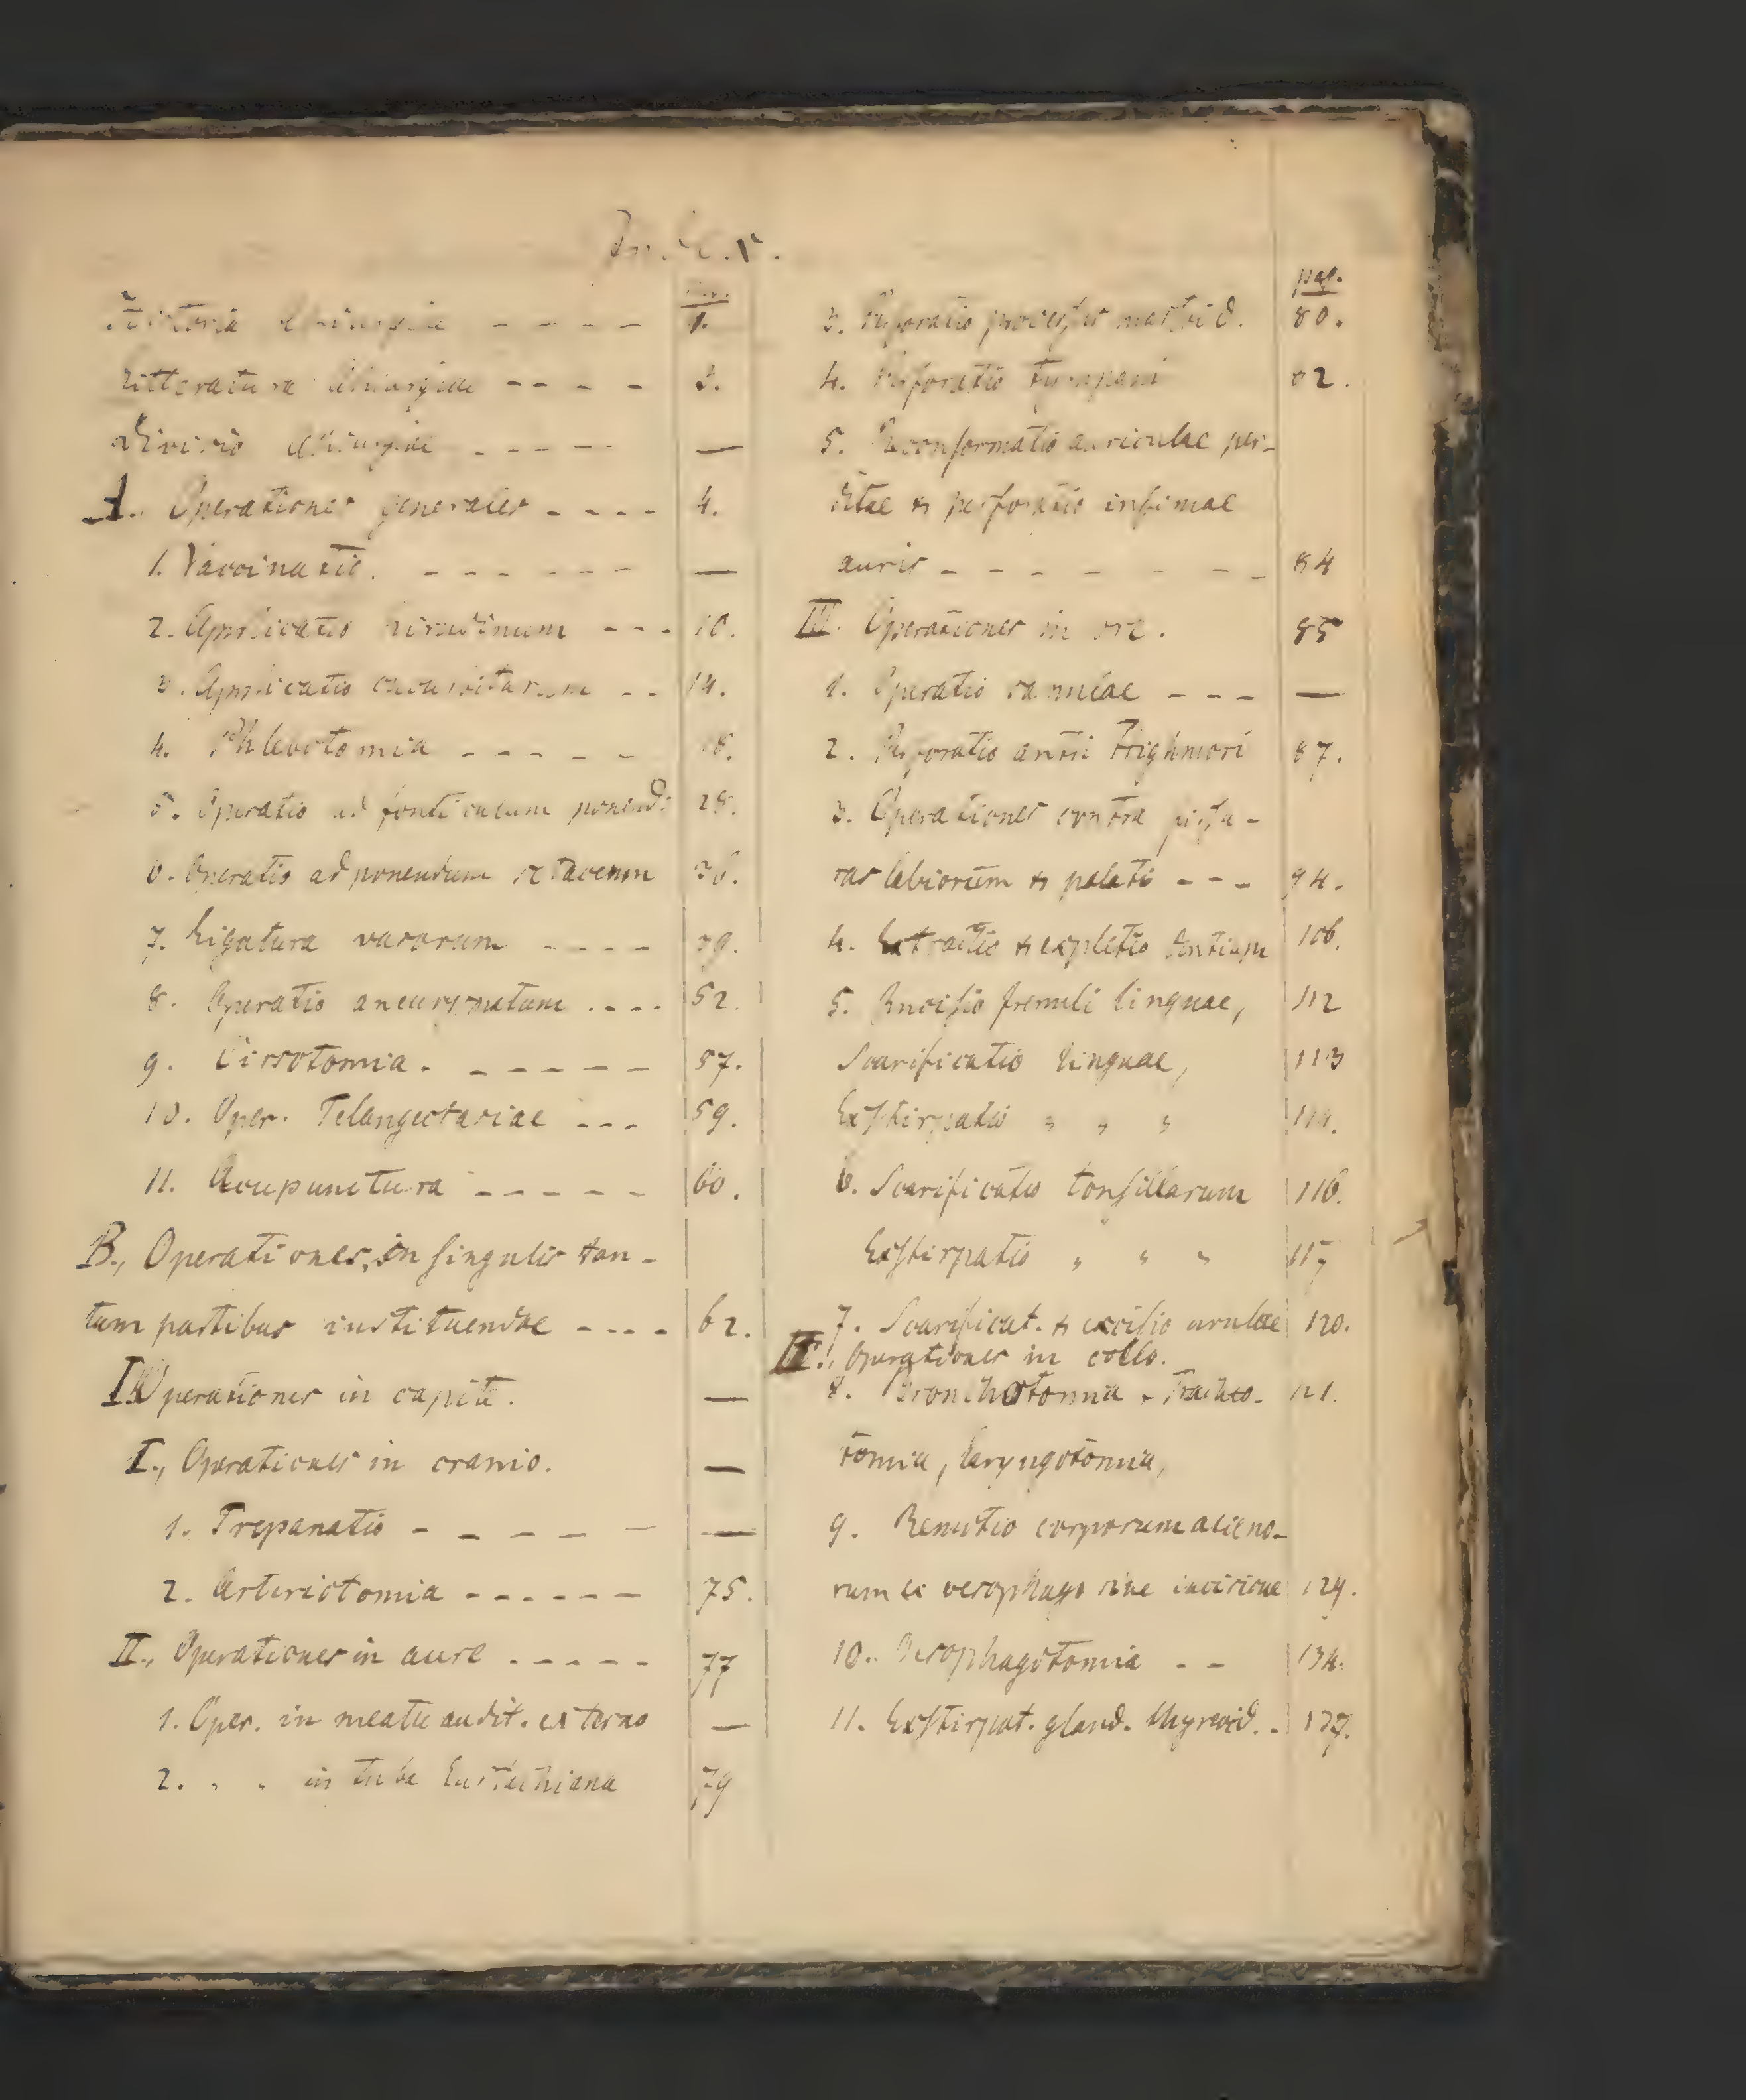 Index.
Historia Chirurgiae - - - - 1.
Litteratura Chirurgiae - - - - 3.
Divisio Chirurgiae - - - - - —
A. Operationes generales - - - - 4.
1. Vaccinatio. - - - - - - - —
2. Applicatio hirudinum - - - 10.
3. Applicatio cucurbitarum - - 14.
4. Phlebotomia - - - - - 18.
5. Operatio ad fonticulum ponend: 28.
6. Operatio ad ponendum setaceum 36.
7. Ligatura vasorum - - - - 39.
8. Operatio aneurysmatum .... 52.
9. Cirsotomia. - - - - - - 57.
10. Oper. Telangectasiae - - - 59.
11. Acupunctura - - - - - 60.
B., Operationes, in singulis tan-
tum partibus instituendae - - - - 62.
I. Operationes in capite. —
I., Operationes in cranio. —
1. Trepanatio - - - - - - —
2. Arteriotomia - - - - - - 75.
II., Operationes in aure - - - - - 77
1. Oper. in meatu audit. externo —
2. " " in tuba Eustachiana 79
pag.
3. Perforatio processus mastoid. 80.
4. Perforatio tympani 82.
5. Reconformatio auriculae per-
ditae & perforatio infimae
auris - - - - - - - - 84
III. Operationes in ore. 85
1. Operatio ranulae - - - —
2. Perforatio antri Highmori 87.
3. Operationes contra fissu-
ras labiorum & palati - - - 94.
4. Extractio & expletio dentium 106.
5. Incisio frenuli linguae, 112
Scarificatio linguae, 113
Exstirpatio " " " 114.
6. Scarificatio tonsillarum 116.
Exstirpatio " " " 117
7. Scarificat. & excisio uvulae 120.
IV., Operationes in collo.
8. Bronchotomia, Tracheo- 121.
tomia, Laryngotomia,
9. Remotio corporum alieno-
rum ex oesophago sine incisione 129.
10. Oesophagotomia - - 134.
11. Exstirpat. gland. thyreoid. - 137.